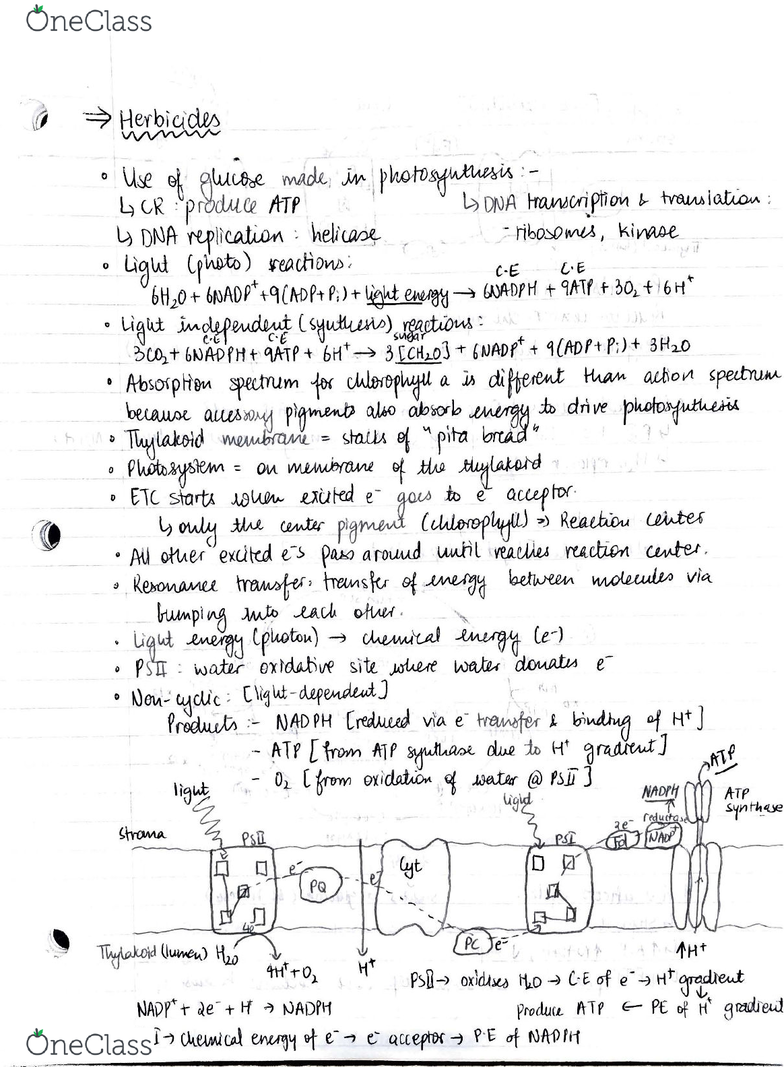 OneClass
⇒ Herbicides
• Use of glucose made in photosynthesis :-
↳ CR : produce ATP ↳ DNA transcription & translation :
↳ DNA replication : helicase - ribosomes, kinase
• Light (photo) reactions:
C.E C.E
6H₂O + 6NADP⁺ + 9(ADP+Pi) + light energy → 6NADPH + 9ATP + 3O₂ + 6H⁺
• Light independent (synthesis) reactions:
C.E C.E sugar
3CO₂ + 6NADPH + 9ATP + 6H⁺ → 3[CH₂O] + 6NADP⁺ + 9(ADP+Pi) + 3H₂O
• Absorption spectrum for chlorophyll a is different than action spectrum
because accessory pigments also absorb energy to drive photosynthesis
• Thylakoid membrane = stacks of "pita bread"
• Photosystem = on membrane of the thylakoid
• ETC starts when excited e⁻ goes to e⁻ acceptor.
↳ only the center pigment (chlorophyll) ⇒ Reaction center
• All other excited e⁻s pass around until reaches reaction center.
• Resonance transfer: transfer of energy between molecules via
bumping into each other.
• Light energy (photon) → chemical energy (e⁻)
• PSII : water oxidative site where water donates e⁻
• Non-cyclic: [light-dependent]
Products :- NADPH [reduced via e⁻ transfer & binding of H⁺]
- ATP [from ATP synthase due to H⁺ gradient]
- O₂ [from oxidation of water @ PSII]
ATP
light light NADPH ATP
synthase
reductase
Stroma PSII PSI 2e⁻ Fd NADP⁺
e⁻ PQ e⁻ Cyt
4e⁻
PC e⁻
Thylakoid (lumen) H₂O 4H⁺ + O₂ H⁺ ↑H⁺
PSII → oxidises H₂O → C.E of e⁻ → H⁺ gradient
NADP⁺ + 2e⁻ + H → NADPH Produce ATP ← PE of H⁺ gradient
I → chemical energy of e⁻ → e⁻ acceptor → P.E of NADPH
OneClass